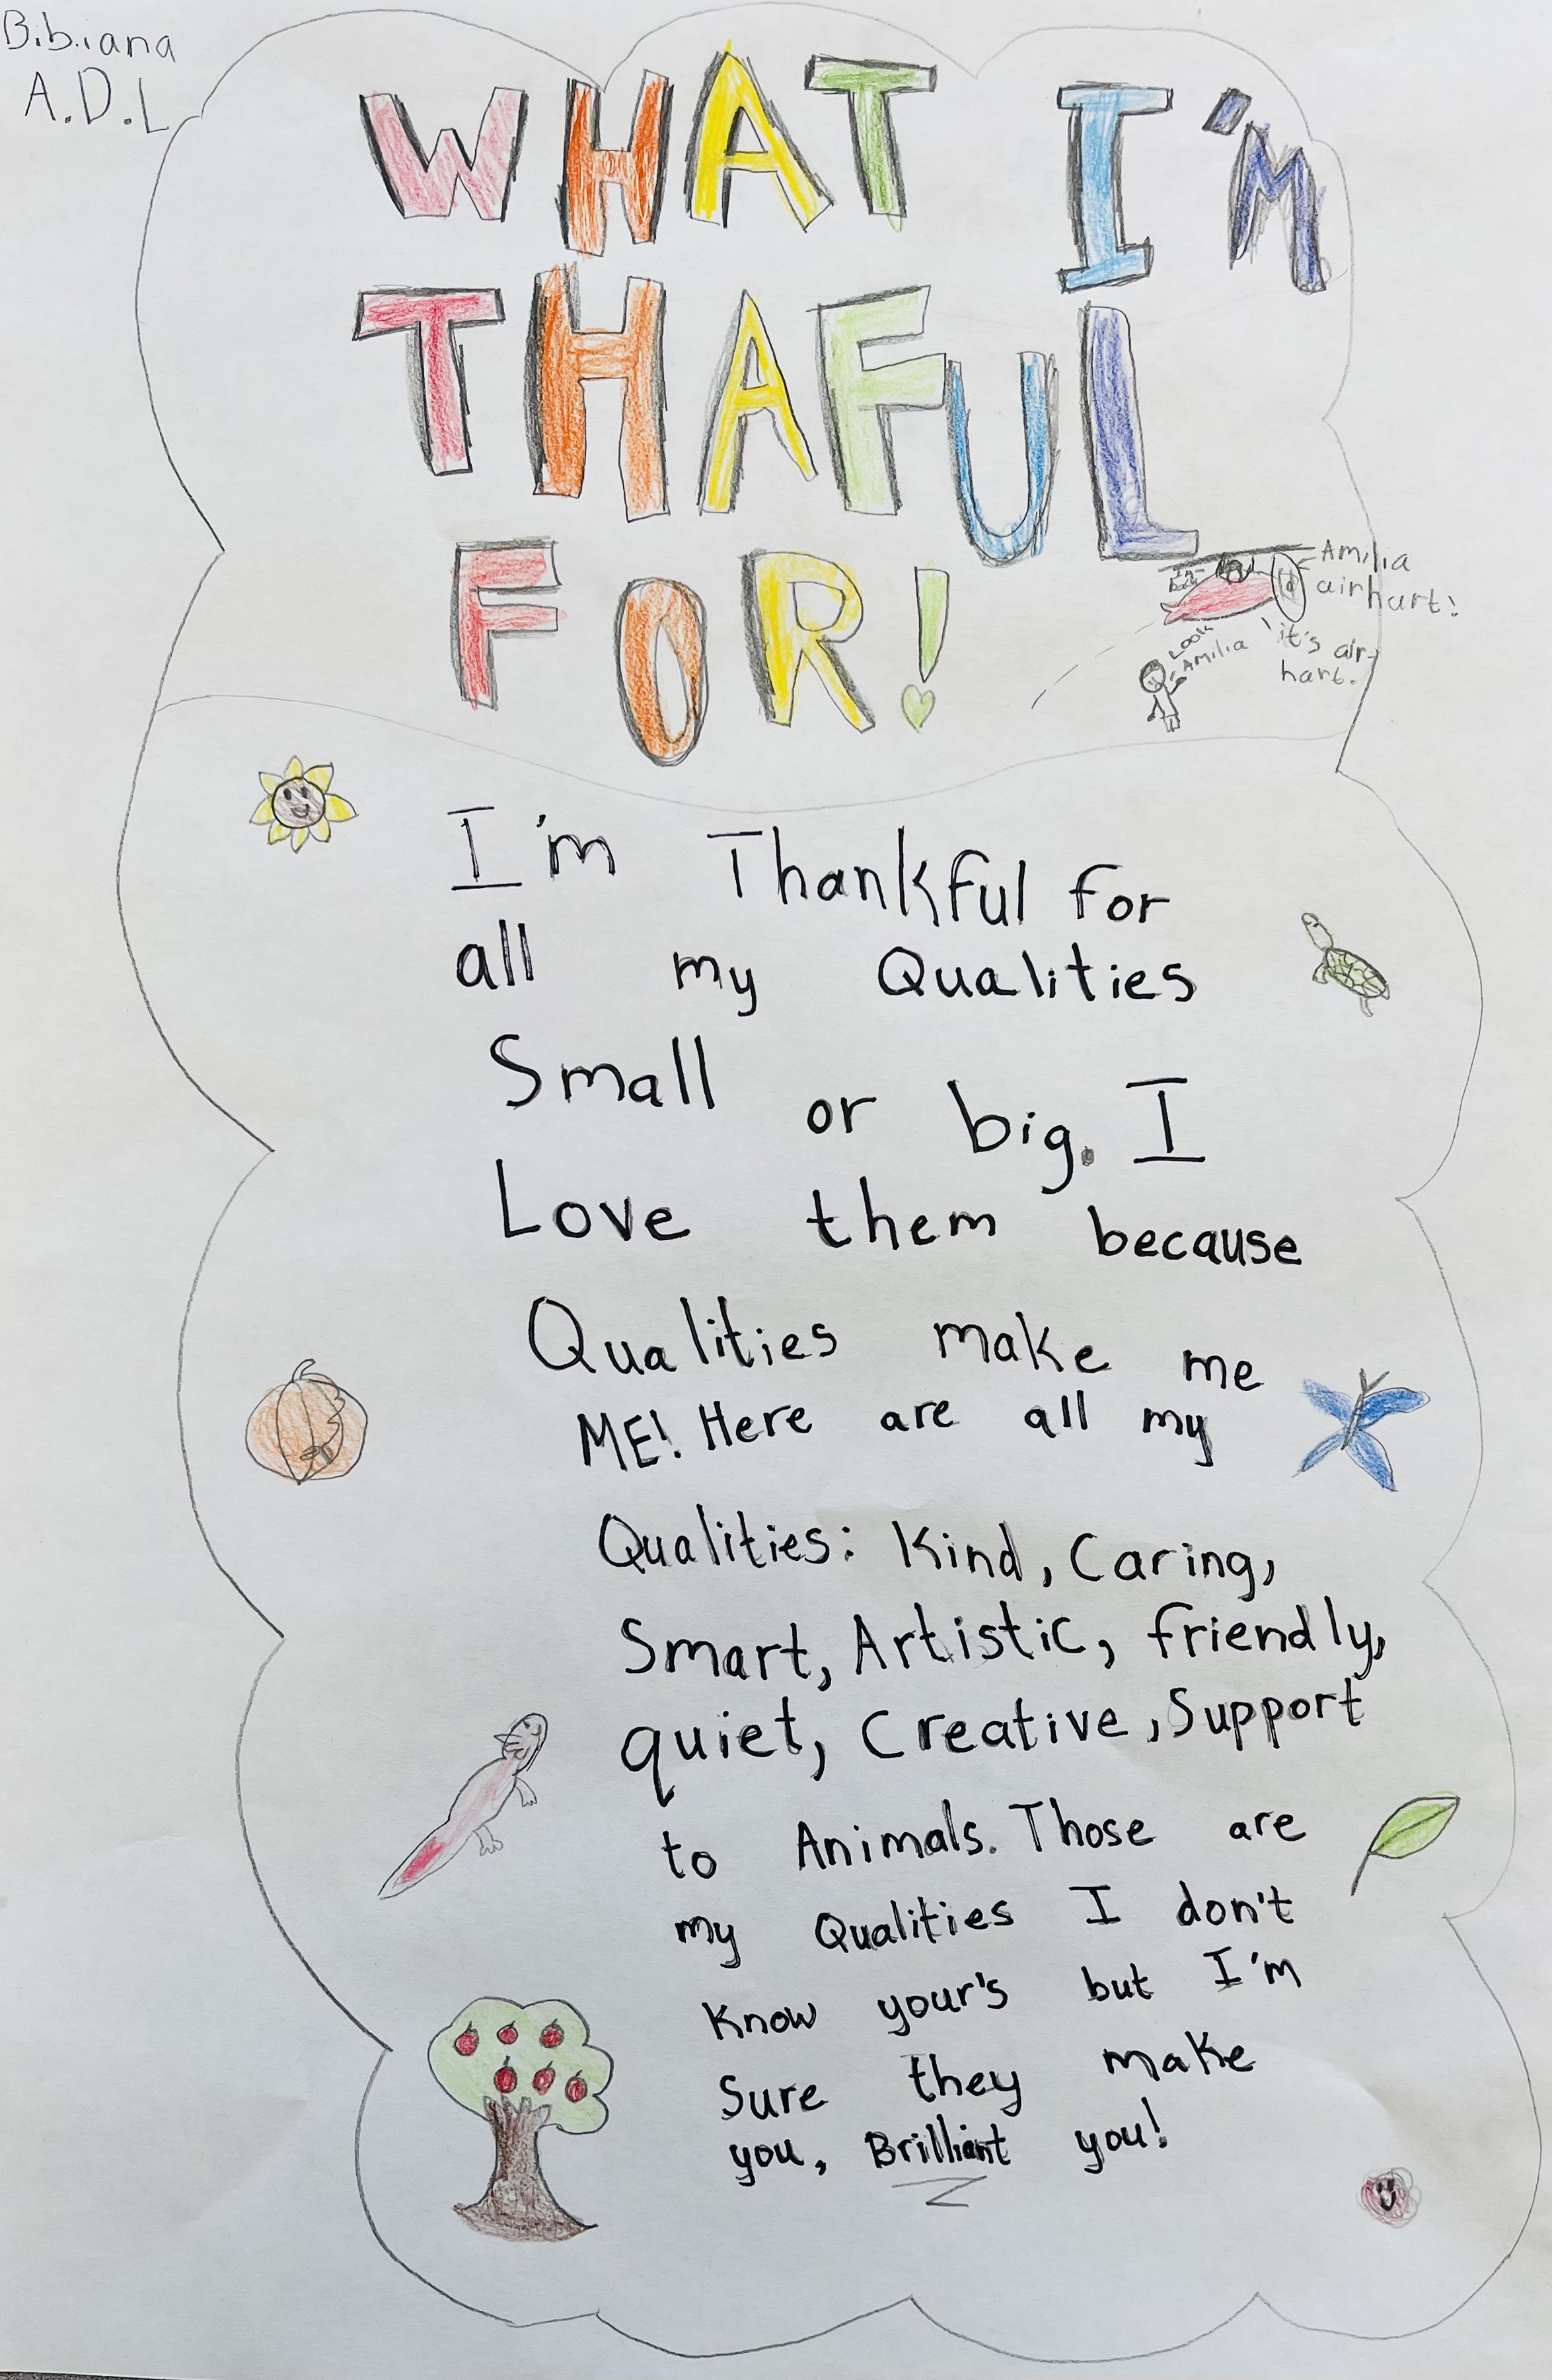 Bibiana
A.D.L
WHAT I'M
THAFUL
FOR!
Amilia
airhart!
Look
Amilia
it's air-
hart.
I'm Thankful for
all my Qualities
Small or big. I
Love them because
Qualities make me
ME! Here are all my
Qualities: Kind, Caring,
Smart, Artistic, friendly,
quiet, Creative, Support
to Animals. Those are
my Qualities I don't
Know your's but I'm
Sure they make
you, Brilliant you!